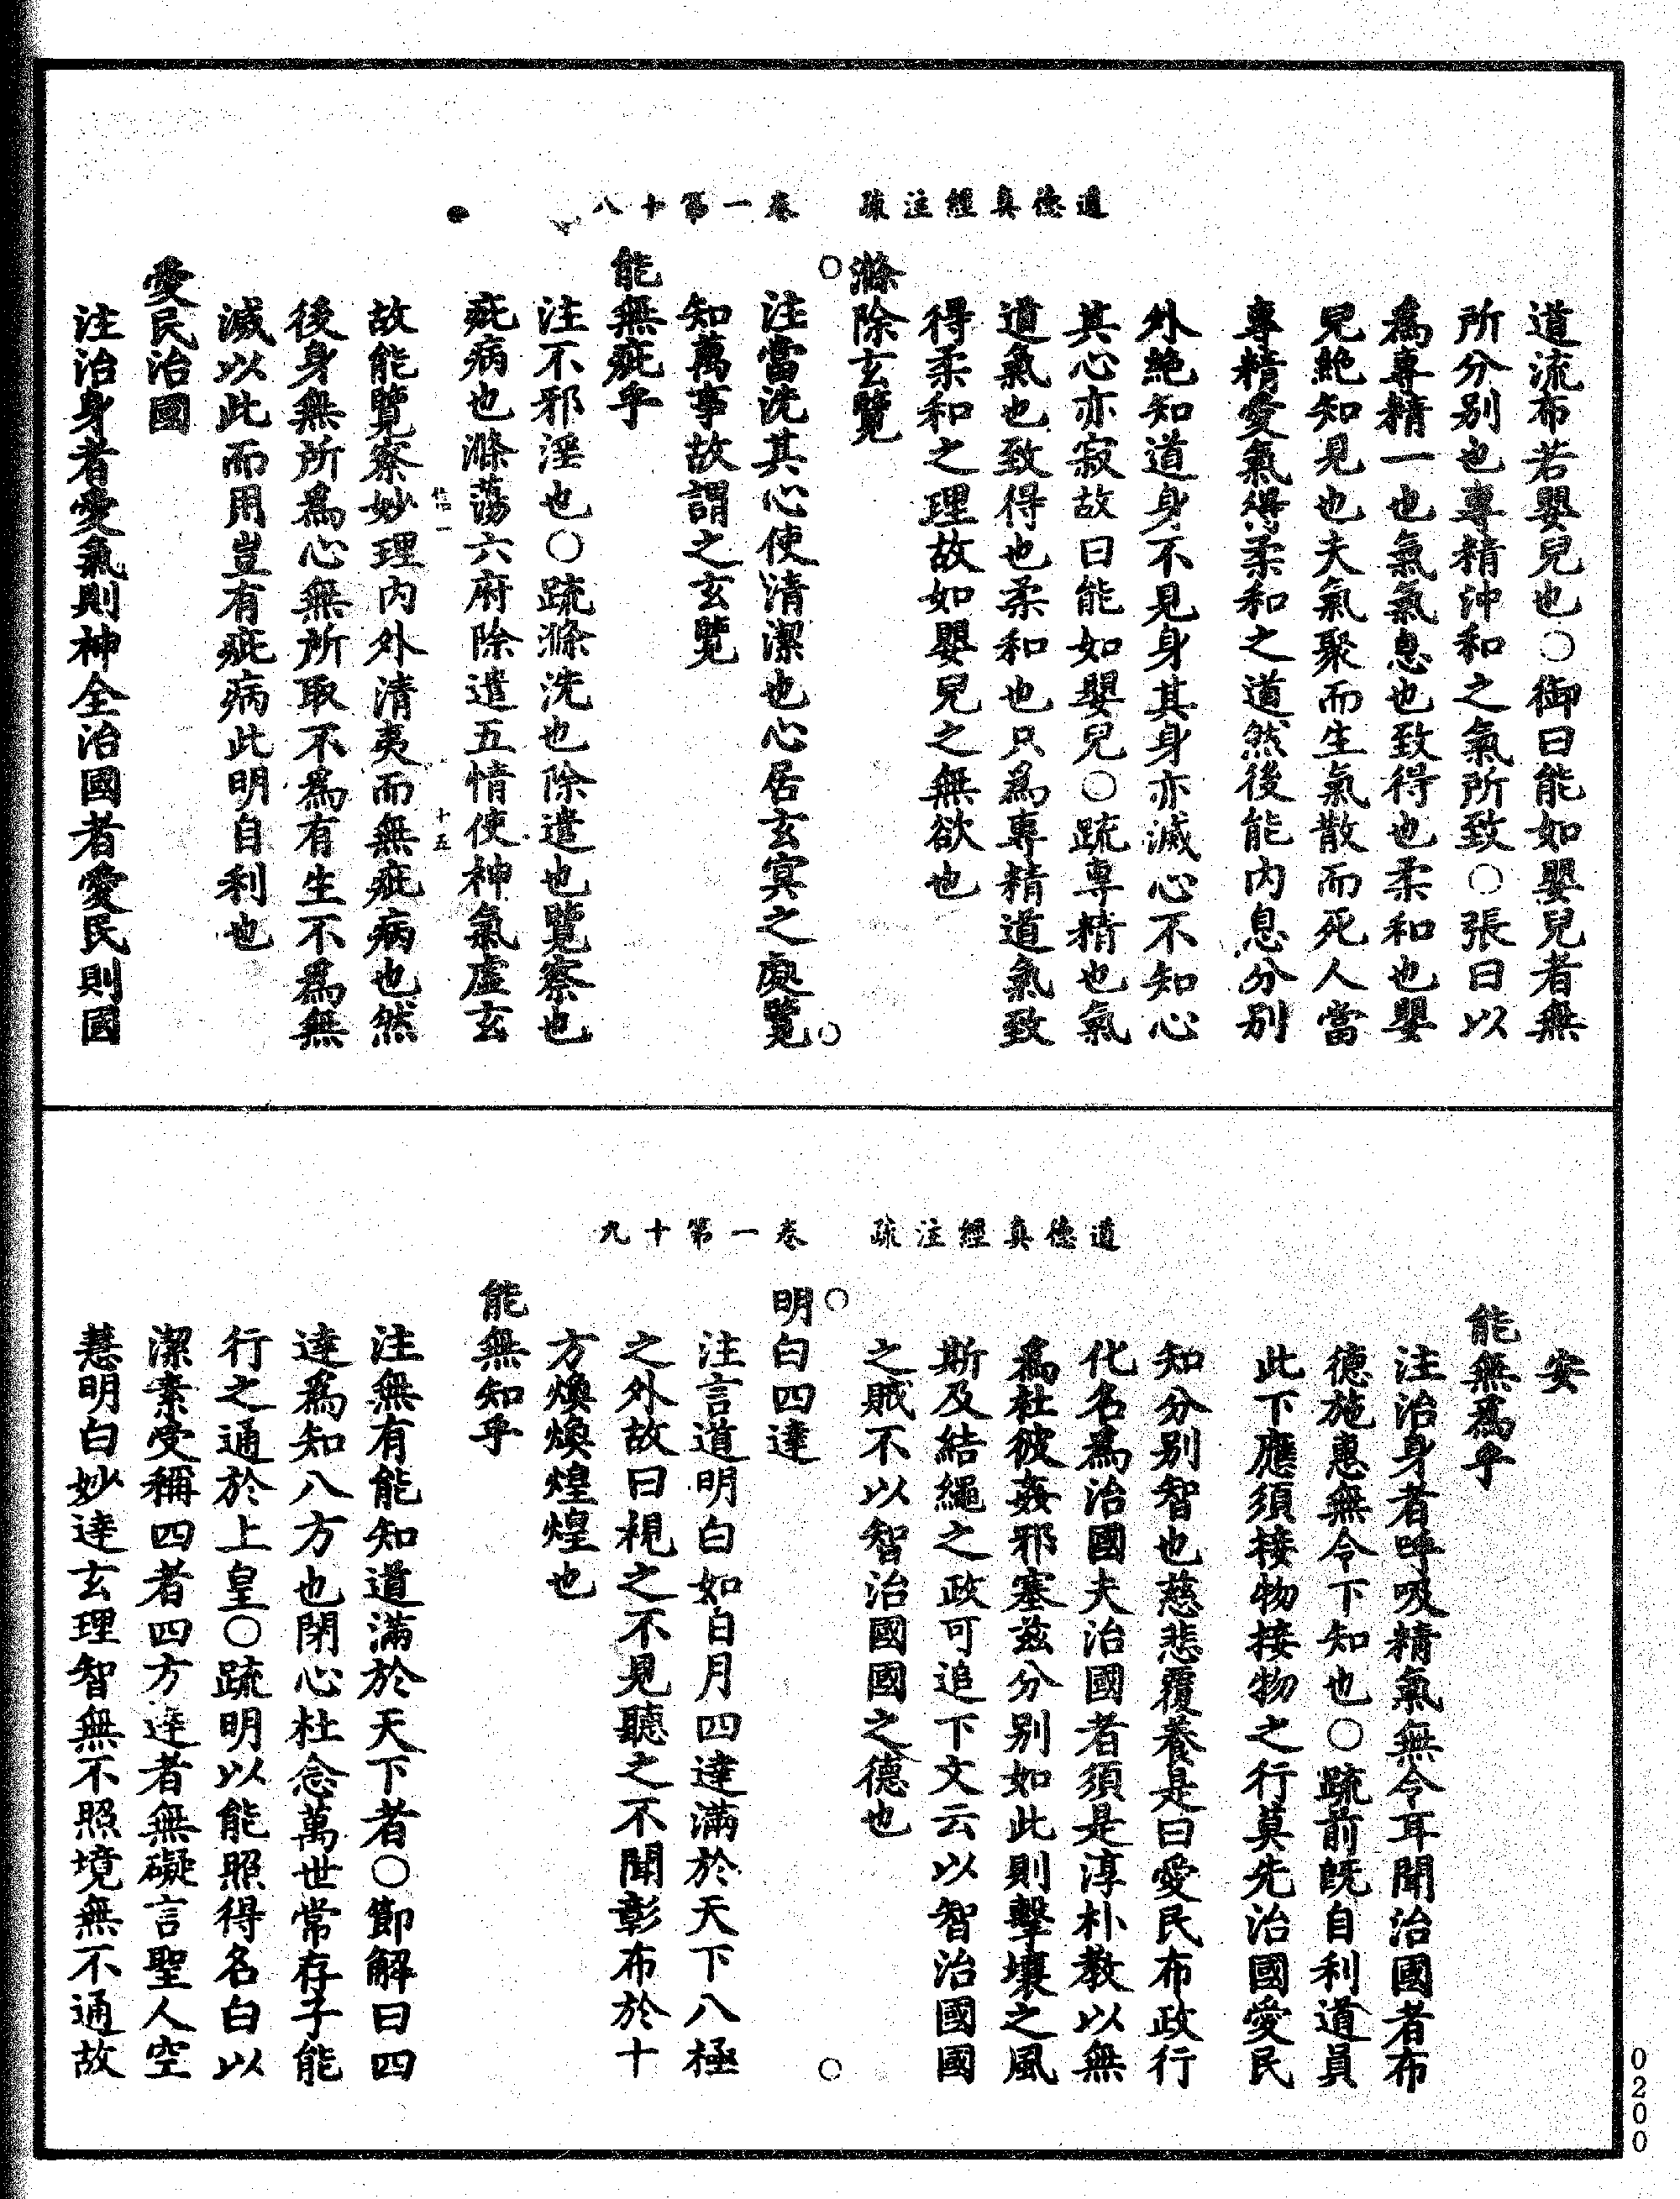 道德真經注疏　卷一第十八
道流布若嬰兒也○御曰能如嬰兒者無
所分别也專精沖和之氣所致○張曰以
爲專精一也氣氣息也致得也柔和也嬰
兒絶知見也夫氣聚而生氣散而死人當
專精愛氣得柔和之道然後能内息分别
外絶知道身不見身其身亦滅心不知心
其心亦寂故曰能如嬰兒○疏專精也氣
道氣也致得也柔和也只爲專精道氣致
得柔和之理故如嬰兒之無欲也
滌除玄覽
注當洗其心使清潔也心居玄㝠之處覽
知萬事故謂之玄覽
能無疵乎
注不邪淫也○疏滌洗也除遣也覽察也
疵病也滌蕩六府除遣五情使神氣虚玄
十五
故能覽察妙理内外清夷而無疵病也然
後身無所爲心無所取不爲有生不爲無
滅以此而用豈有疵病此明自利也
愛民治國
注治身者愛氣則神全治國者愛民則國
道德真經注疏　卷一第十九
安
能無爲乎
注治身者呼吸精氣無令耳聞治國者布
德施惠無令下知也○疏前旣自利道員
此下應須接物接物之行莫先治國愛民
知分别智也慈悲覆養是曰愛民布政行
化名爲治國夫治國者須是淳朴教以無
爲杜彼姦邪塞兹分别如此則擊壤之風
斯及結繩之政可追下文云以智治國國
之賊不以智治國國之德也
明白四達
注言道明白如白月四達滿於天下八極
之外故曰視之不見聽之不聞彰布於十
方煥煥煌煌也
能無知乎
注無有能知道滿於天下者○節解曰四
達爲知八方也閉心杜念萬世常存子能
行之通於上皇○疏明以能照得名白以
潔素受稱四者四方達者無礙言聖人空
慧明白妙達玄理智無不照境無不通故
0200